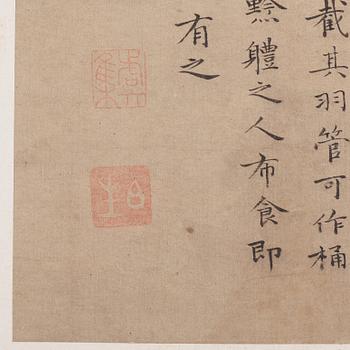 截其羽管可作桶
黥體之人布食即
有之